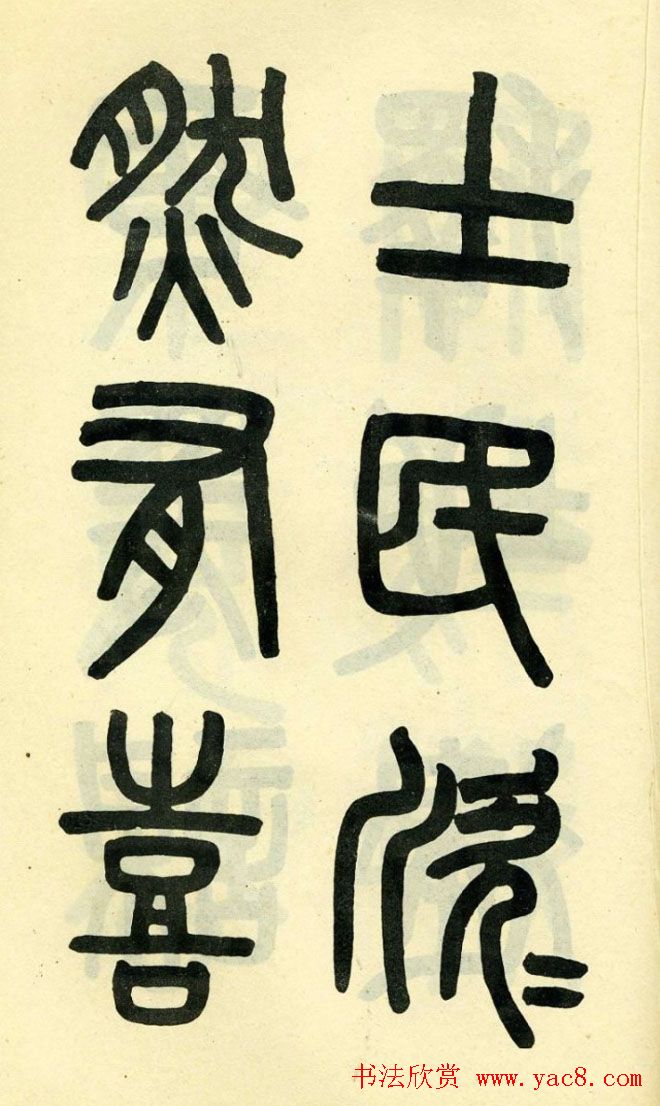 士民
然有喜
书法欣赏 www.yac8.com